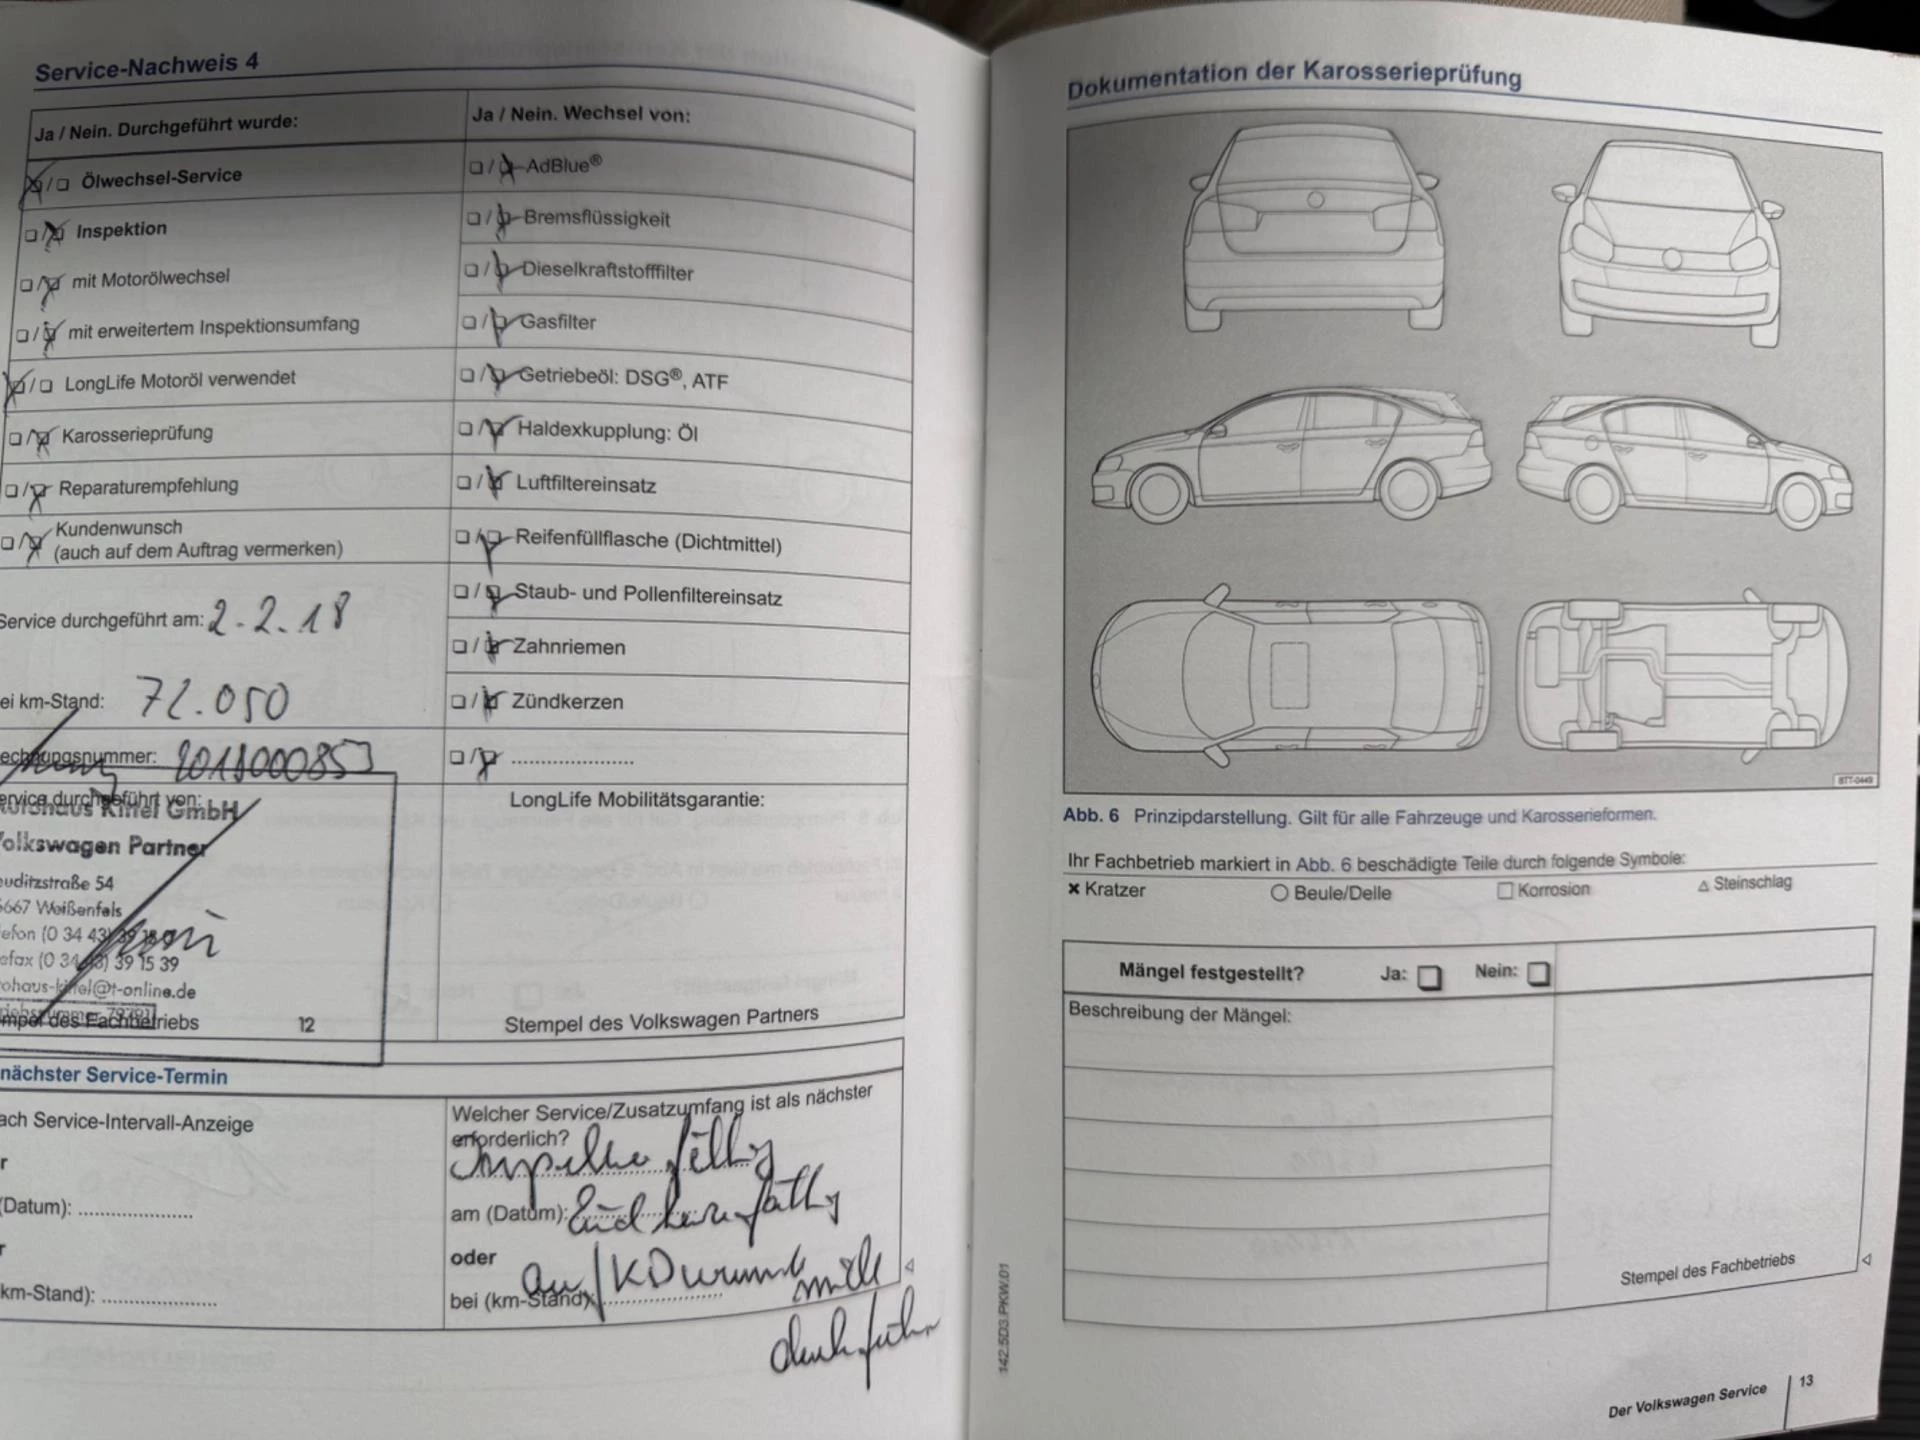 Service-Nachweis 4
Ja / Nein. Durchgeführt wurde:
Ölwechsel-Service
Inspektion
mit Motorölwechsel
mit erweitertem Inspektionsumfang
LongLife Motoröl verwendet
Karosserieprüfung
Reparaturempfehlung
Kundenwunsch
(auch auf dem Auftrag vermerken)
Service durchgeführt am: 2.2.18
ei km-Stand: 72.050
echnungsnummer: 2018000853
ervice durchgeführt von:
utohaus Kittel GmbH
Volkswagen Partner
uditzstraße 54
6667 Weißenfels
efon (0 34 43) 39 15 0
efax (0 34 43) 39 15 39
ohaus-kittel@t-online.de
mpel des Fachbetriebs 12
Ja / Nein. Wechsel von:
AdBlue®
Bremsflüssigkeit
Dieselkraftstofffilter
Gasfilter
Getriebeöl: DSG®, ATF
Haldexkupplung: Öl
Luftfiltereinsatz
Reifenfüllflasche (Dichtmittel)
Staub- und Pollenfiltereinsatz
Zahnriemen
Zündkerzen
LongLife Mobilitätsgarantie:
Stempel des Volkswagen Partners
nächster Service-Termin
ach Service-Intervall-Anzeige
r
(Datum):
r
km-Stand):
Welcher Service/Zusatzumfang ist als nächster
erforderlich?
am (Datum):
oder
bei (km-Stand):
Dokumentation der Karosserieprüfung
8TT-0449
Abb. 6 Prinzipdarstellung. Gilt für alle Fahrzeuge und Karosserieformen.
Ihr Fachbetrieb markiert in Abb. 6 beschädigte Teile durch folgende Symbole:
Kratzer Beule/Delle Korrosion Steinschlag
Mängel festgestellt? Ja: Nein:
Beschreibung der Mängel:
Stempel des Fachbetriebs
142.5D3.PKW.01
Der Volkswagen Service 13